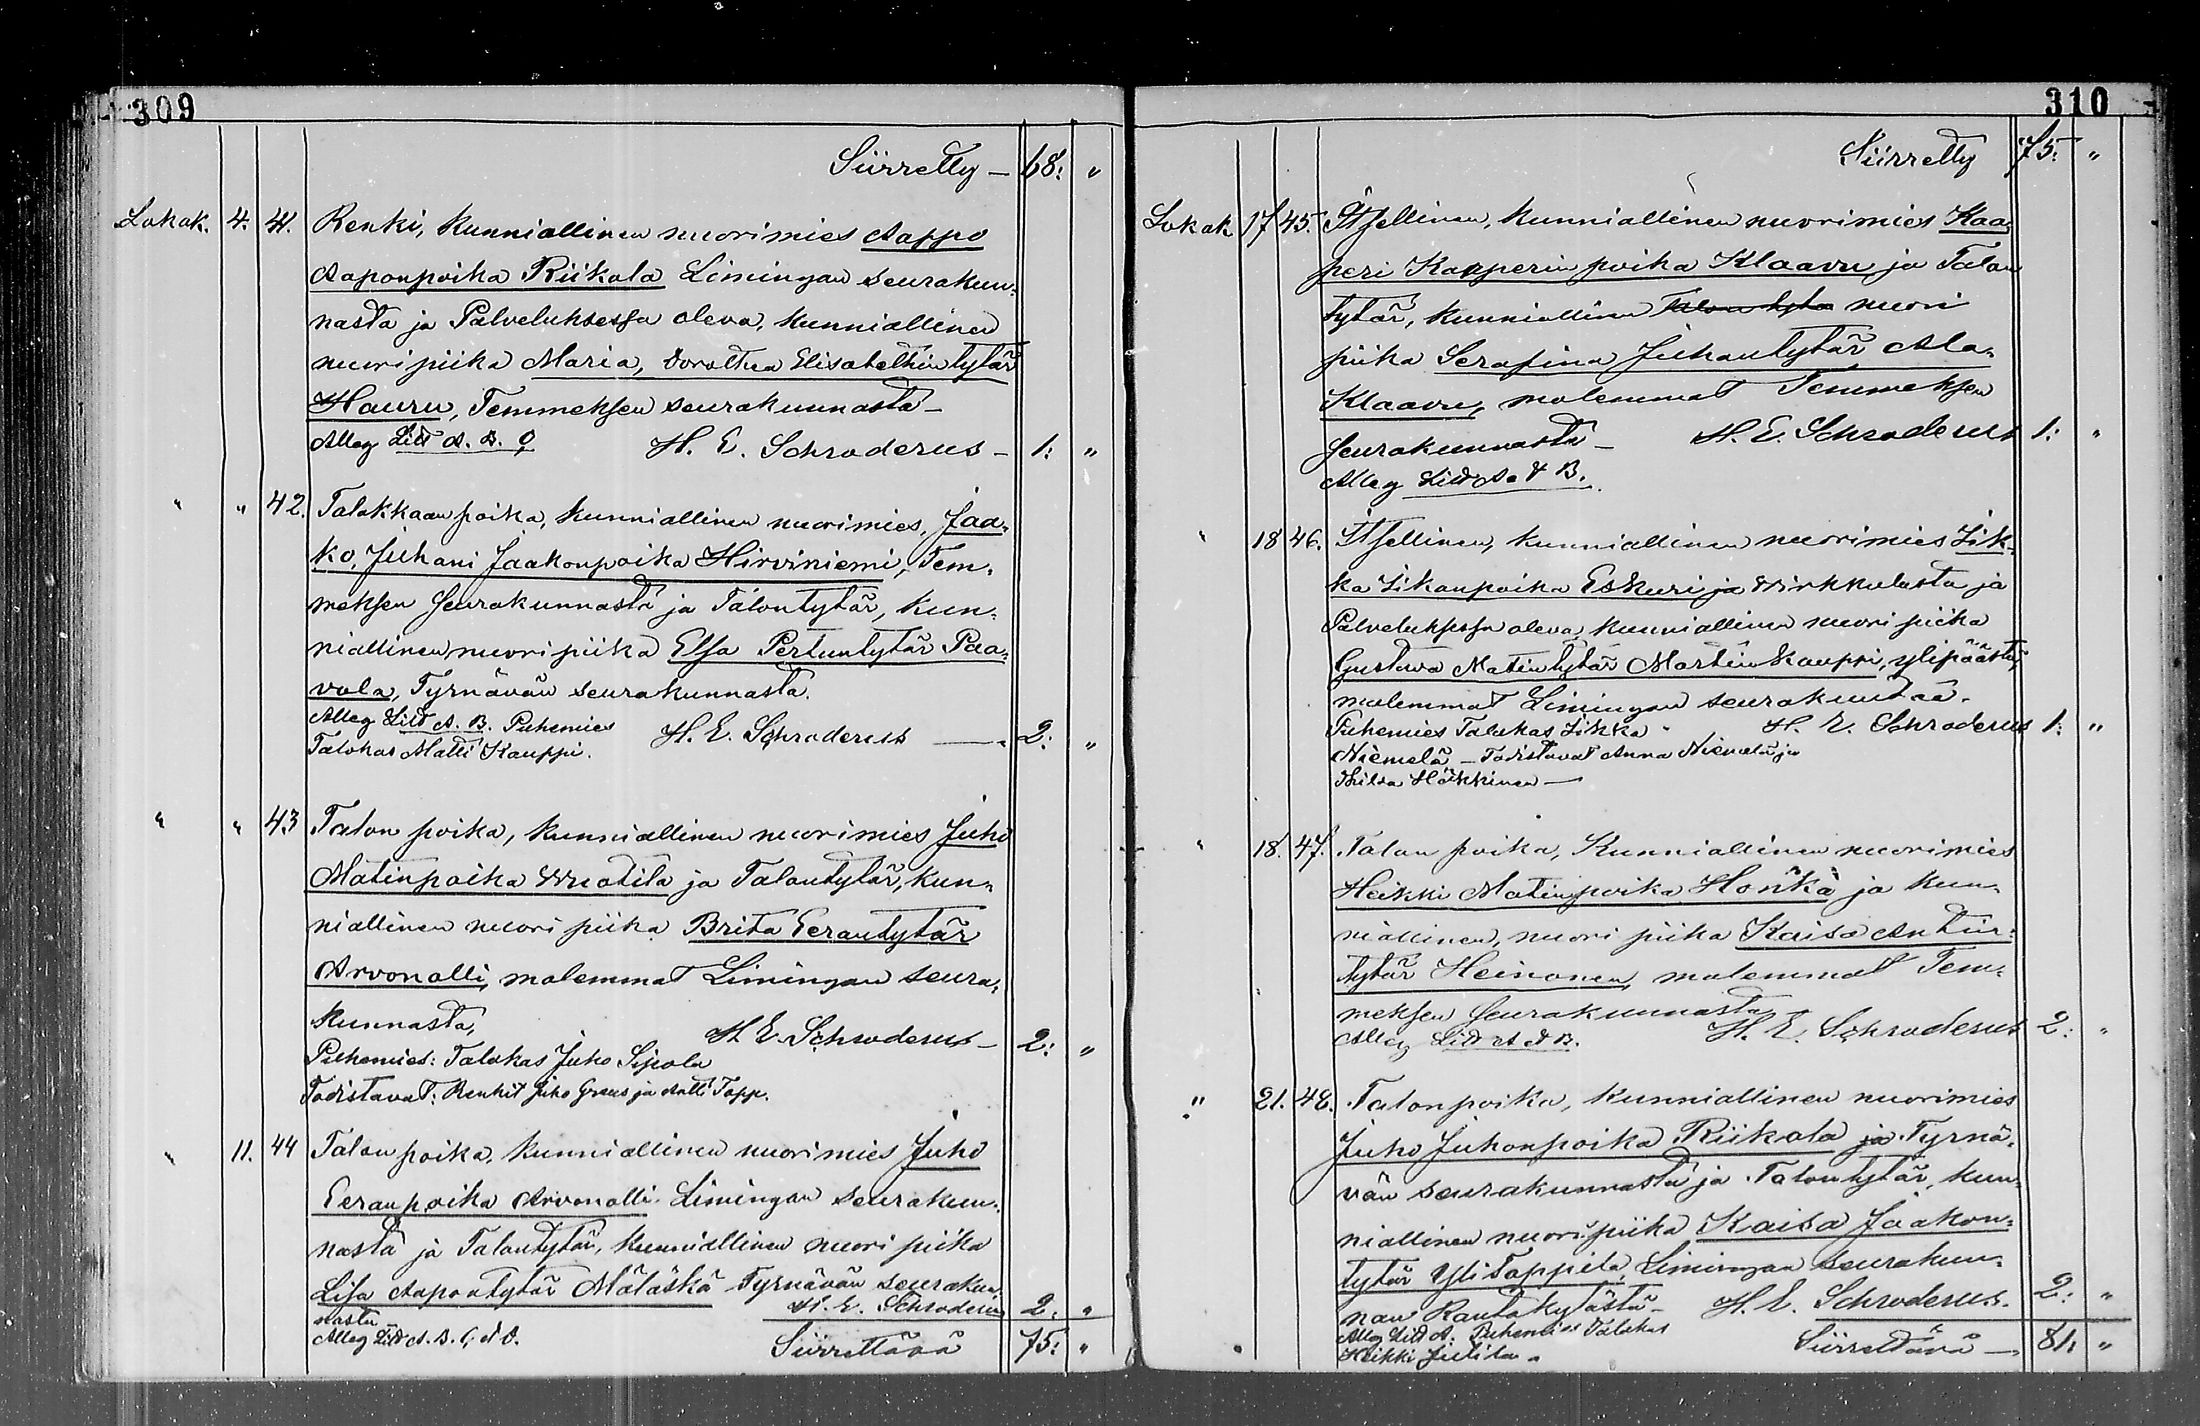 309
Siirretty — 68: "
Lokak. 4. 41. Renki, kunniallinen nuorimies Aappo
Aaponpoika Riikola Limingan seurakun-
nasta ja Palveluksessa oleva, kunniallinen
nuori piika Maria, Dorothea Elisabethintytär
Hauru, Temmeksen seurakunnasta —
Alleg Litt A. B. C H. E. Schroderus — 1: "
" " 42. Talokkaan poika, kunniallinen nuorimies, Jaa-
ko, Juhani Jaakonpoika Hirviniemi, Tem-
meksen seurakunnasta ja Talontytär, kun-
niallinen nuori piika Elsa Pertuntytär Paa-
vola, Tyrnävän seurakunnasta.
Alleg Litt A. B. Puhemies H. E. Schroderus — 2: "
Talokas Matti Kauppi.
" " 43 Talon poika, kunniallinen nuorimies Juho
Matinpoika Wuotila ja Talontytär, kun-
niallinen nuori piika Brita Eerantytär
Arvonalli, molemmat Limingan seura-
kunnasta, H. E. Schroderus — 2: "
Puhemies: Talokas Juho Sipola
Todistavat: Renkit Juho Greus ja Antti Tapp.
" 11. 44 Talon poika, kunniallinen nuorimies Juho
Eeranpoika Arvonalli Limingan seurakun-
nasta ja Talontytär, kunniallinen nuori piika
Lisa Aapontytär Määtäskä Tyrnävän seurakun-
nasta H. E. Schroderus 2: "
Alleg Litt A. B. C, & D. Siirrettävä 75: "
310
Siirretty 75: "
Lokak 17 45. Itsellinen, kunniallinen nuorimies Kaa-
peri Kaaperin poika Klaavu ja Talon
tytär, kunniallinen Talon tytär nuori
piika Serafina Juhontytär Ala-
Klaavu, molemmat Temmeksen
seurakunnasta — H. E. Schroderus 1: "
Alleg Litt A. & B.
" 18 46. Itsellinen, kunniallinen nuorimies Iik-
ka Iikanpoika Eskuri ja Wirkkulasta ja
Palveluksessa oleva, kunniallinen nuori piika
Gustava Matintytär Martin Kauppi, ylipäästä,
molemmat Limingan seurakuntaa.
Puhemies Talokas Iikka H. E. Schroderus 1: "
Niemelä — Todistavat Anna Niemelä ja
Hilda Häkkinen —
" 18. 47. Talon poika, Kunniallinen nuorimies
Heikki Matinpoika Honkä ja kun-
niallinen, nuori piika Kaisa Antin-
tytär Heinonen, molemmat Tem-
meksen seurakunnasta H. E. Schroderus 2: "
Alleg Litt A & B.
" 21. 48. Talonpoika, kunniallinen nuorimies
Juho Juhonpoika Riikola ja Tyrnä-
vän seurakunnasta ja Talontytär, kun-
niallinen nuori piika Kaisa Jaakon-
tytär Yli Tappila, Limingan seurakun-
nan Rantakylästä — H. E. Schroderus. 2: "
Alleg Litt A. Puhemies Talokas
Heikki Jutila. Siirrettävä — 81: "